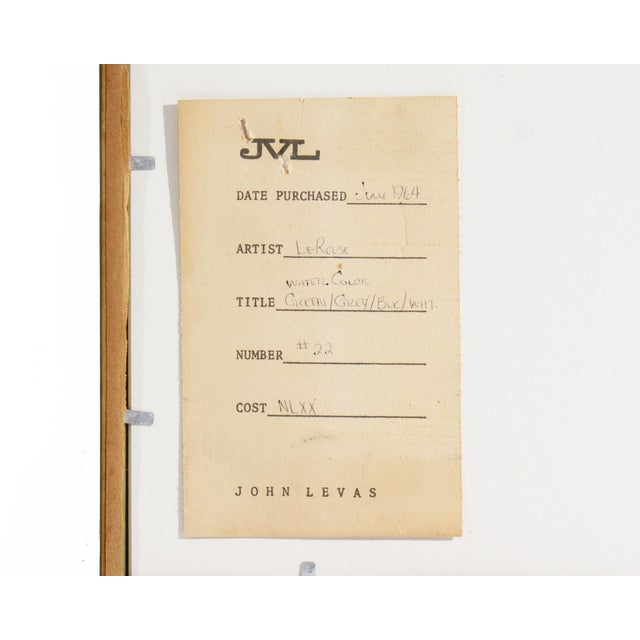 JVL
DATE PURCHASED July 1964
ARTIST LeReuse
WATER COLOR
TITLE GREEN/GREY/BLK/WHT.
NUMBER #22
COST NLXX
JOHN LEVAS